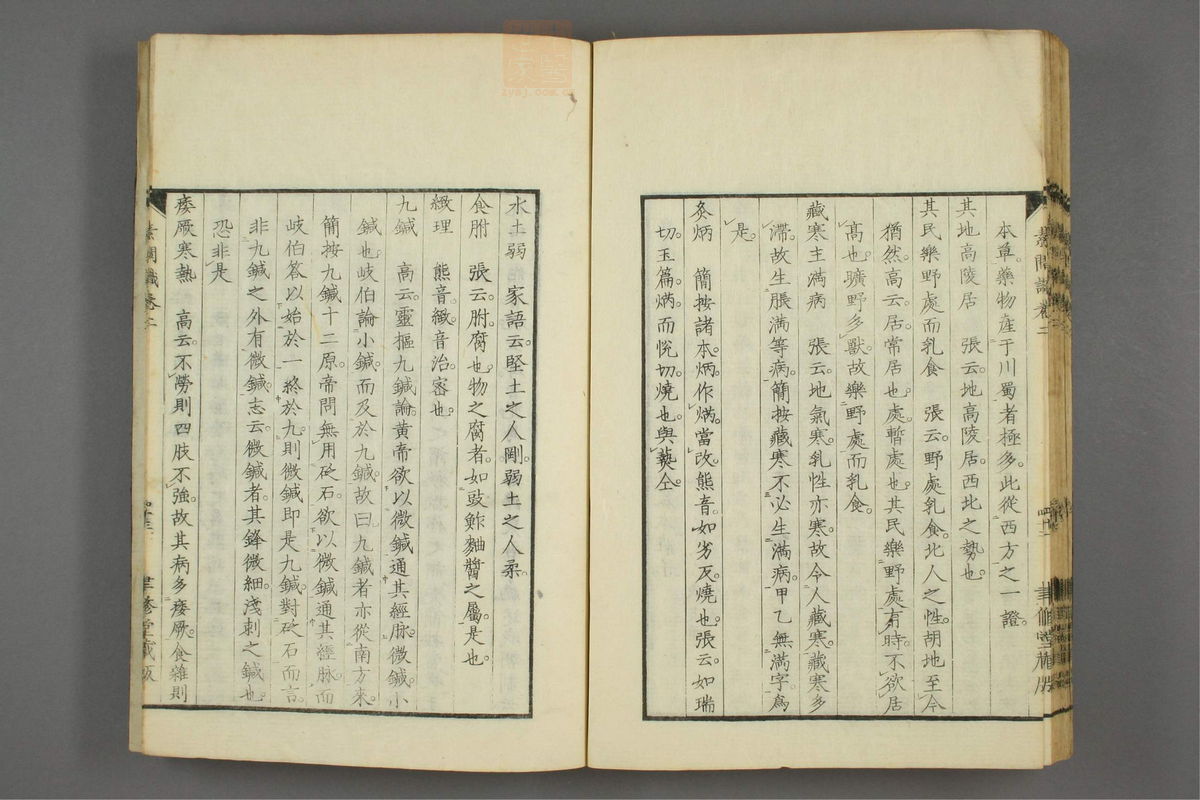 本草藥物産于川蜀者極多此從西方之一證
其地高陵居　張云地高陵居西北之勢也
其民樂野處而乳食　張云野處乳食北人之性胡地至今
猶然高云居常居也處暫處也其民樂野處有時不欲居
高也曠野多獸故樂野處而乳食
藏寒主滿病　張云地氣寒乳性亦寒故令人藏寒藏寒多
滯故生脹滿等病簡按藏寒不必生滿病甲乙無滿字爲
是
灸焫　簡按諸本焫作焫當改熊音如劣反燒也張云如瑞
切玉篇焫而悅切燒也與爇仝
素問識卷二
水土弱　家語云堅土之人剛弱土之人柔
食胕　張云胕腐也物之腐者如豉鮓麯醬之屬是也
緻理　熊音緻音治密也
九鍼　高云靈樞九鍼論黃帝欲以微鍼通其經脉微鍼小
鍼也岐伯論小鍼而及於九鍼故曰九鍼者亦從南方來
簡按九鍼十二原帝問無用砭石欲以微鍼通其經脉而
岐伯答以始於一終於九則微鍼即是九鍼對砭石而言
非九鍼之外有微鍼志云微鍼者其鋒微細淺刺之鍼也
恐非是
痿厥寒熱　高云不勞則四肢不強故其病多痿厥食雜則
素問識卷二
聿修堂藏版
zysj.com.cn